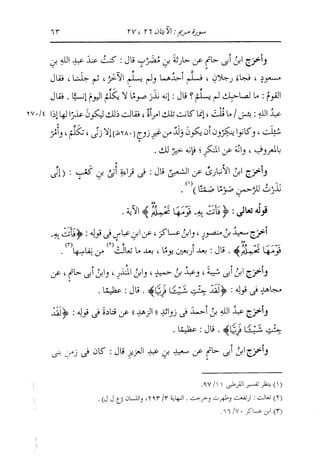 سورة مريم : الآيتان ٢٦ ، ٢٧
٦٣
وأخرج ابنُ أبى حاتمٍ عن حارثةَ بنِ مُضَرِّبٍ قال : كنتُ عندَ عبدِ اللهِ بنِ
مسعودٍ ، فجاء رجلان ، فسلَّم أحدُهما ولم يسلِّمِ الآخرُ ، ثم جلسا ، فقال
القومُ : ما لصاحبِك لم يسلِّمْ ؟ قال : إنه نذَر صومًا لا يكلِّمُ اليومَ إنسيًّا . فقال
عبدُ اللهِ : بئسَ / ما قُلتَ ، إنما كانت تلك امرأةً ، فقالت ذلك ليكونَ عذرًا لها إذا
٢٧٠/٤
سُئلت ، وكانوا ينكِرون أن يكونَ ولدٌ من غيرِ زوجٍ [٢٨٠ظ] إلا زنًى ، تكلَّمْ ، وأْمُرْ
بالمعروفِ ، وانْهَ عن المنكرِ ؛ فإنه خيرٌ لك .
وأخرج ابنُ الأنبارىِّ عن الشعبىِّ قال : فى قراءةِ أُبىِّ بنِ كعبٍ : ( إنِّى
نَذَرْتُ للرَّحمنِ صَوْمًا صَمْتًا )(١) .
قولُه تعالى : ﴿ فَأَتَتْ بِهِۦ قَوْمَهَا تَحْمِلُهُۥ ﴾ الآية .
أخرج سعيدُ بنُ منصورٍ ، وابنُ عساكرَ ، عن ابنِ عباسٍ فى قولِه : ﴿ فَأَتَتْ بِهِۦ
قَوْمَهَا تَحْمِلُهُۥ ﴾ . قال : بعدَ أربعين يومًا ، بعدَ ما تعالَّت(٢) من نِفاسِها(٣) .
وأخرج ابنُ أبى شيبةَ ، وعبدُ بنُ حميدٍ ، وابنُ المنذرِ ، وابنُ أبى حاتمٍ ، عن
مجاهدٍ فى قولِه : ﴿ لَقَدْ جِئْتِ شَيْئًا فَرِيًّا ﴾ . قال : عظيمًا .
وأخرج عبدُ اللهِ بنُ أحمدَ فى زوائدِ « الزهدِ » عن قتادةَ فى قولِه : ﴿ لَقَدْ
جِئْتِ شَيْئًا فَرِيًّا ﴾ . قال : عظيمًا .
وأخرج ابنُ أبى حاتمٍ عن سعيدِ بنِ عبدِ العزيزِ قال : كان فى زمنِ بنى
(١) ينظر تفسير القرطبى ١١/ ٩٧.
(٢) تعالت : ارتفعت وطهرت وخرجت . النهاية ٣/ ٢٩٣، واللسان (ع ل ل) .
(٣) ابن عساكر ٧٠/ ١٦.